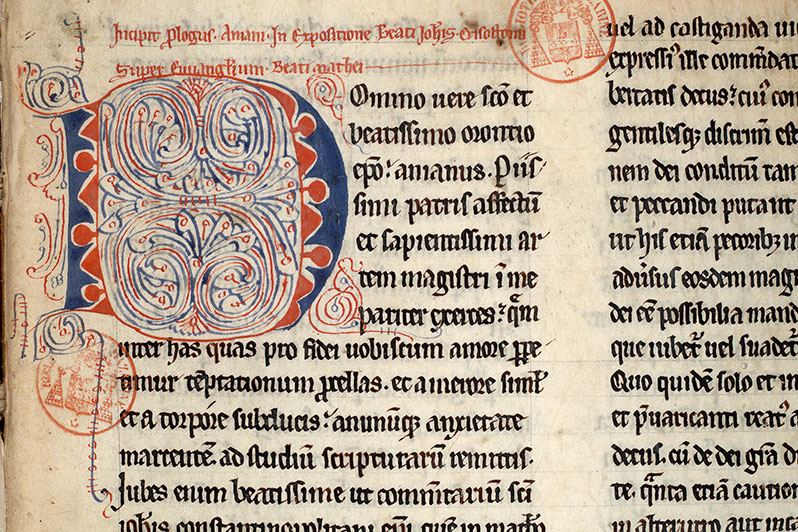 Incipit plogus. Amani. In Expositione Beati Johis. Crisostomi
Super Euuangelium. Beati mathei
Domino uere sco et
beatissimo orontio
epo: amanus. Piis
simi patris affectu
et sapientissimi ar
tem magistri i me
pariter exerces: qm
inter has quas pro fidei uobiscum amore ppe
timur teptationum pcellas. et a merore simul
et a torpore subducis: animuq; anxietate
marcente. ad studiu scripturarum remittis.
Jubes enim beatissime ut commtariu sci
iohis constantinopolitani epi, que in math
uel ad castiganda ui
expressi illic commdat
bertatis decus: cui con
gentilesq; discrim este
nem dei conditu tam
et peccandi putant
ut his etia pecorib; in
aduisus eosdem mag
dei ee possibilia mand
que iubet uel suadet
Quo quide solo et in
et puaricanti reat a
decus. cu de dei gra d
te. qnta etia caution
in alterutro aut in